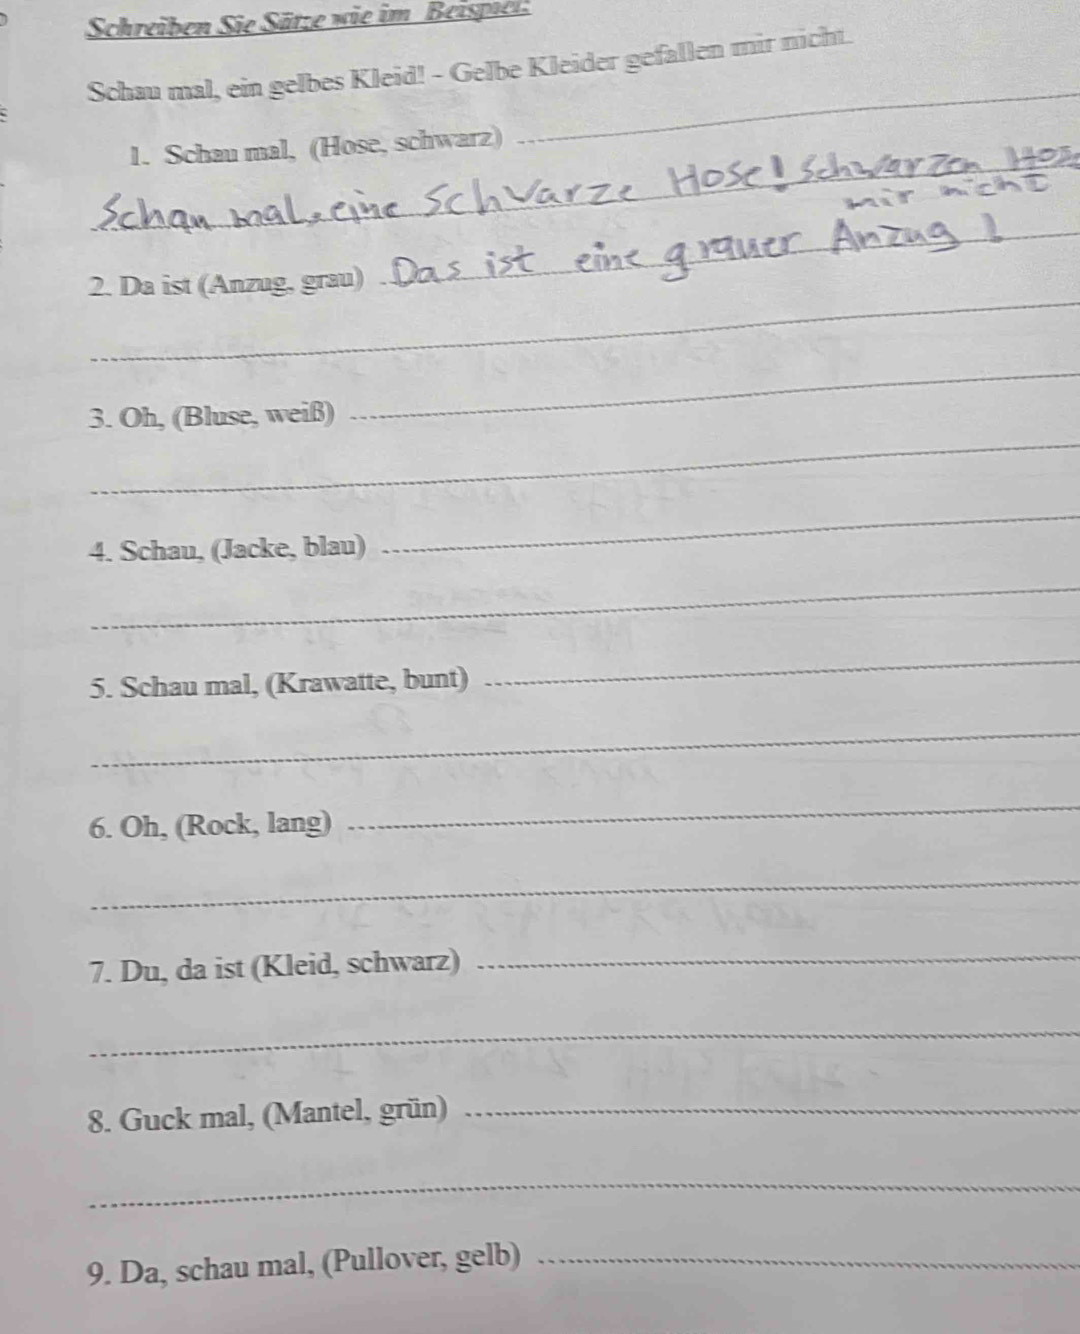 Schreiben Sie Sätze wie im Beispiel:
Schau mal, ein gelbes Kleid! - Gelbe Kleider gefallen mir nicht.
1. Schau mal, (Hose, schwarz)
Schau mal, eine Schwarze Hose! Schwarzen
mir nicht
2. Da ist (Anzug, grau) Das ist eine grauer Anzug!
3. Oh, (Bluse, weiß)
4. Schau, (Jacke, blau)
5. Schau mal, (Krawatte, bunt)
6. Oh, (Rock, lang)
7. Du, da ist (Kleid, schwarz)
8. Guck mal, (Mantel, grün)
9. Da, schau mal, (Pullover, gelb)